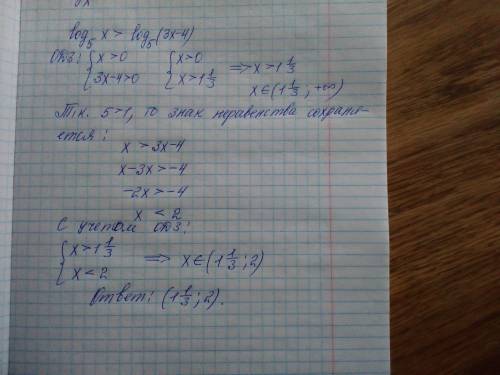 log₅ x > log₅(3x-4)
ОДЗ: { x>0 { x>0
{ 3x-4>0 { x>1 1/3 ⇒ x>1 1/3
x∈(1 1/3; +∞)
Т.к. 5>1, то знак неравенства сохраня-
ется:
x > 3x-4
x-3x>-4
-2x>-4
x < 2
С учетом ОДЗ:
{ x>1 1/3
{ x<2 ⇒ x∈(1 1/3; 2)
Ответ: (1 1/3; 2).